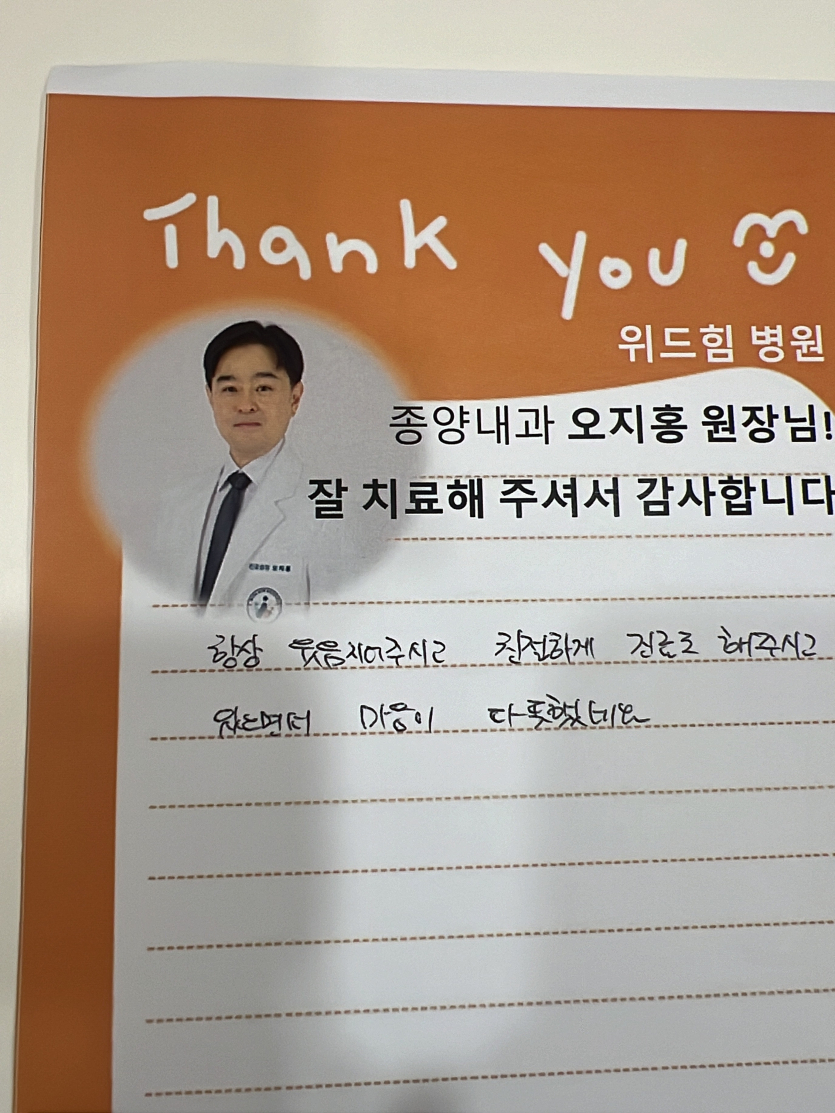 Thank you
위드힘 병원
종양내과 오지홍 원장님!
잘 치료해 주셔서 감사합니다
항상 웃음지어주시고 친절하게 진료도 해주시고
마음이 따뜻했네요